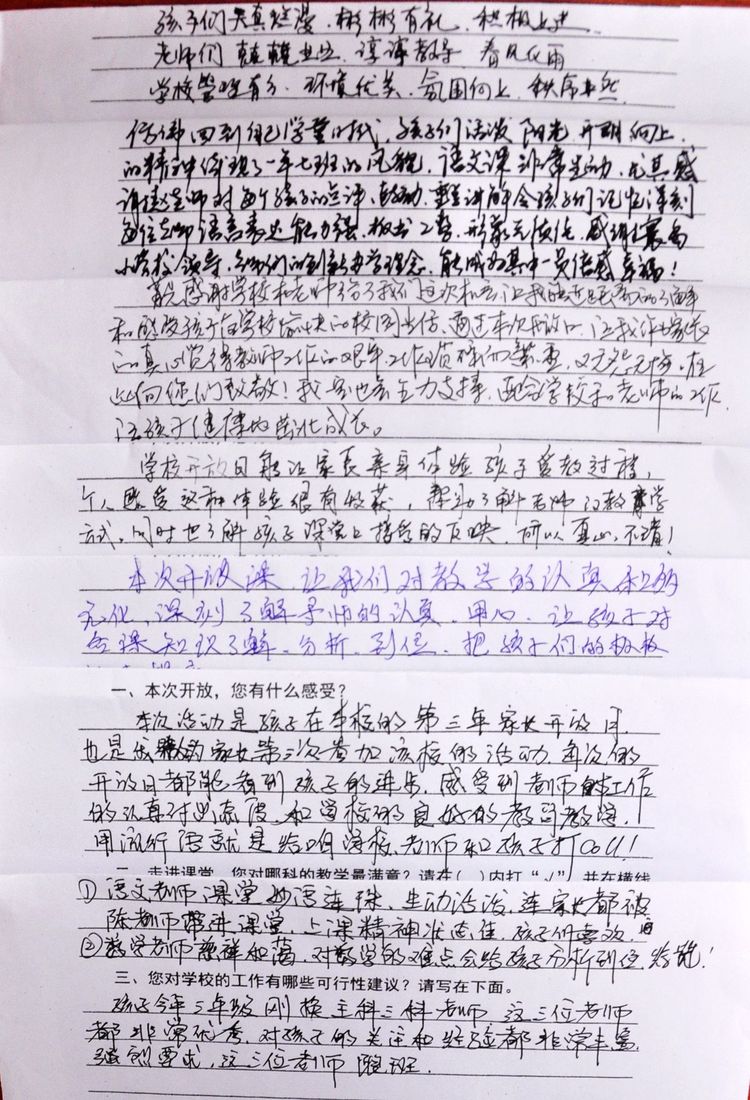 孩子们天真烂漫、彬彬有礼、积极上进
老师们兢兢业业、谆谆教导、春风化雨
学校管理有方、环境优美、氛围向上、秩序井然
仿佛回到自己学童时代,孩子们活泼 阳光 开朗向上
的精神体现了一年七班的风貌,语文课非常生动,尤其感
谢 老师对每个孩子的点评、鼓励、 讲的令孩子们记忆深刻
每位老师语言表达能力强、板书工整、形象无 感谢
小学校领导、 们的 办学理念,能成为其中一员倍感幸福!
首先感谢学校和老师给了我们这次机会,让我 了解
和感受孩子在学校愉快的校园生活,通过本次开放日,让我作为家长
的真心觉得教师工作的艰辛,工作琐碎而繁重,又无怨无悔,在
此向您们致敬!我 也会全力支持、配合学校和老师的工作,
让孩子健康的茁壮成长。
学校开放日能让家长亲身体验孩子受教过程,
个人感觉这种体验很有收获,帮助了解老师的教学
方式,同时也了解孩子课堂上接受的反映,可以 ,不错!
本次开放课,让我们对教学的认真
,深刻了解老师的认真、用心、让孩子对
每课知识了解、分析、到位、把孩子们的积极
一、本次开放,您有什么感受?
本次活动是孩子在本校的第三年家长开放日,
也是我 家长第三次参加该校的活动,每次的
开放日都能看到孩子的进步,感受到老师 工作
的认真对 态度,和学校的良好的教育教学,
用流行语就是给咱学校、老师和孩子打Call!
二、走进课堂,您对哪科的教学最满意?请在( )内打“√”,并在横线
①语文老师课堂妙语连珠,生动活泼,连家长都被
陈老师带进课堂,上课精神状态佳,孩子们喜欢,
②数学老师慈祥和蔼,对数学的难点会给孩子分析到位,
三、您对学校的工作有哪些可行性建议?请写在下面。
孩子今年三年级刚换主科三科老师,这三位老师
都非常优秀,对孩子的关注和经验都非常丰富,
强烈要求,这三位老师跟班.